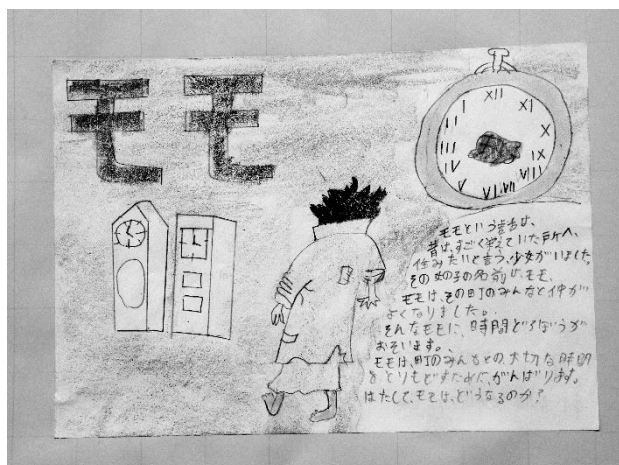 モモ
XII
XI
X
IX
モモという者は、
昔は、すごく栄えていた所へ、
住みたいと言う、少女がいました
その女の子の名前は、モモ。
モモは、その町のみんなと仲が
よくなりました。
そんなモモに、時間どろぼうが
おそいます。
モモは、町のみんなとの大切な時間
をとりもどすために、がんばります。
はたして、モモは、どうなるのか？